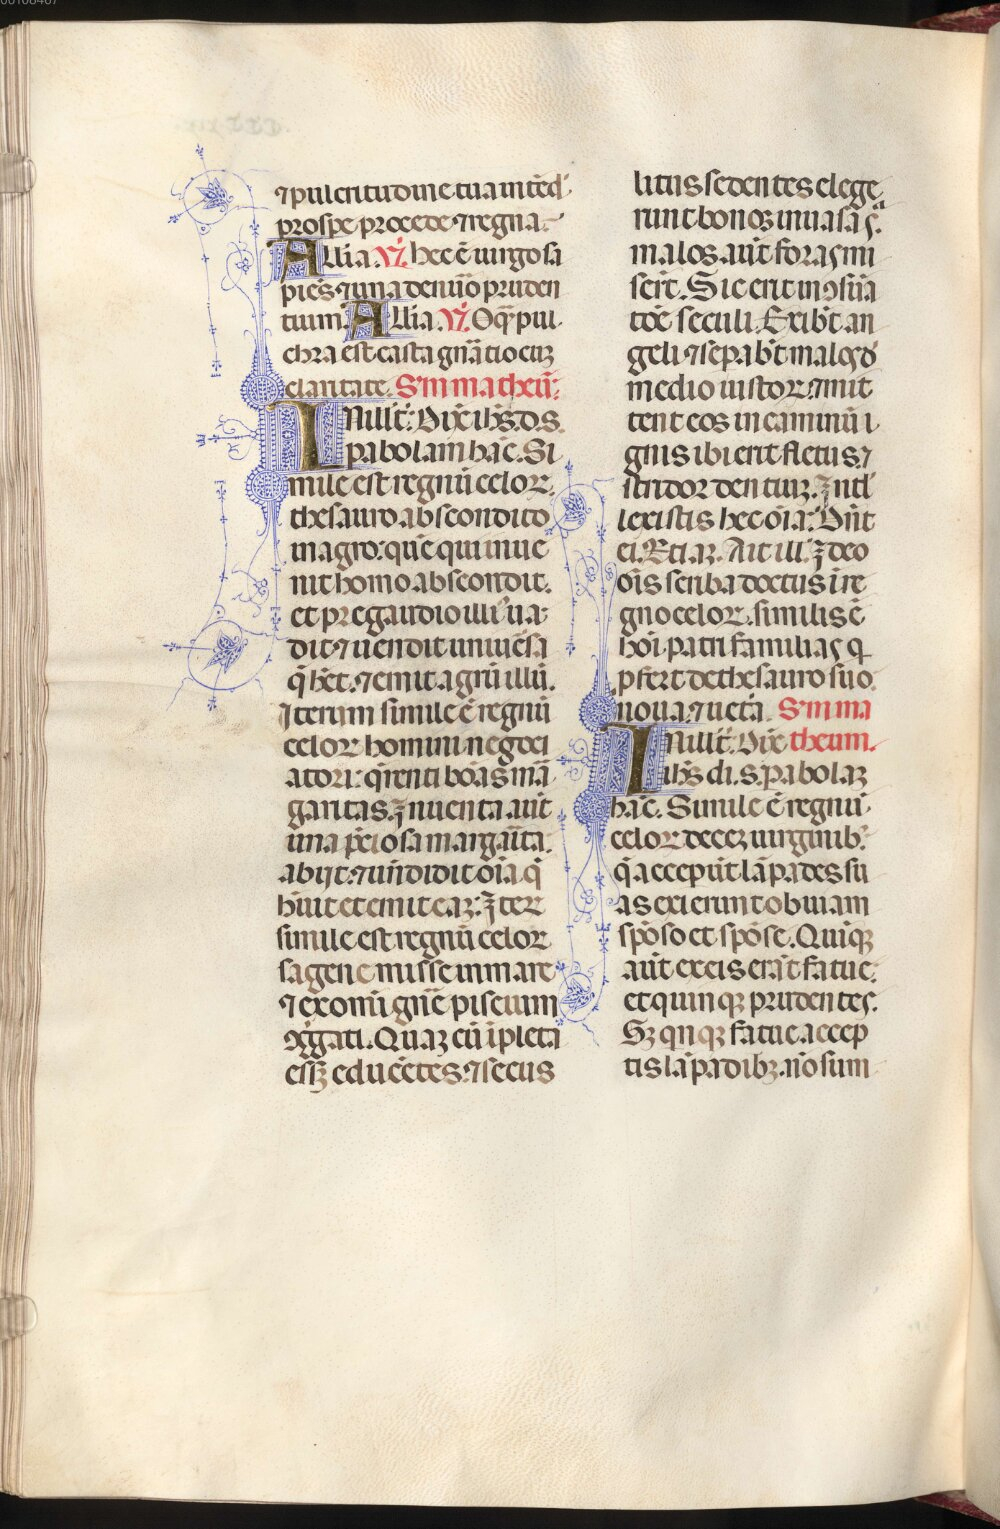 ⁊ pulcritudine tua intēd̕
prospe procede ⁊ regna.
Allia. V̕. hec ē uirgo sa
piēs ⁊ una de nūo pruden
tium. Allia. V̕. O q̄ pul
chra est casta gn̄atio cuȝ
claritate. S'm matheū:
IN ill't': Dix̄ ih̄s. d. s.
pabolam hāc. Si
mile est regnū celoꝝ.
thesauro abscondito
in agro: quē qui inue
nit homo abscondit.
et pre gaudio illi' ua:
dit: ⁊ uendit uniuēsa
q̄ h̄et. ⁊ emit agrū illū.
Iterum simile ē regnū
celoꝝ homini negoci
atori: q̄renti bōas mā
garitas. Inuenta aūt
una p̄ciosa margāita.
abijt: ⁊ uēndidit oīa q̄
h̄uit et emit eaȝ: Iteꝝ
simile est regnū celoꝝ
sagene misse in mare
⁊ ex omī gn̄e piscium
ꝯḡgati. Quaȝ cū īpleta
essȝ educētes: ⁊ secus
litus sedentes elege
runt bonos in uasa s̄.
malos aūt foras mi
seīt. Sic erit in ꝯsūa
tōe seculi. Exib̄t an
geli ⁊ sepab̄t malos d̕
medio iustoꝝ: ⁊ mit
tent eos in caminū i
gnis ibi erit fletus: ⁊
stridor dentiuȝ. Intl̕
lexistis hec oīa: Dn̄t
ei. Etiaȝ. Ait ill': Ideo
oīs scriba doctus ī re
gno celoꝝ. similis ē
hoī patri familias q̄
pfert de thesauro suo.
noua: ⁊ uet̄a. S'm ma
IN ill't': Dix̄ theum.
ih̄s di. s. pabolaȝ
hāc. Simile ē regnū
celoꝝ deceȝ uirginibȝ:
q̄ acceperūt lāpades su
as exierunt obuiam
spōso et spōse. Quīqȝ
aūt ex eis erāt fatue:
et quinqȝ prudentes.
Sȝ qnqȝ fatue accep
tis lāpadibȝ. nō sum